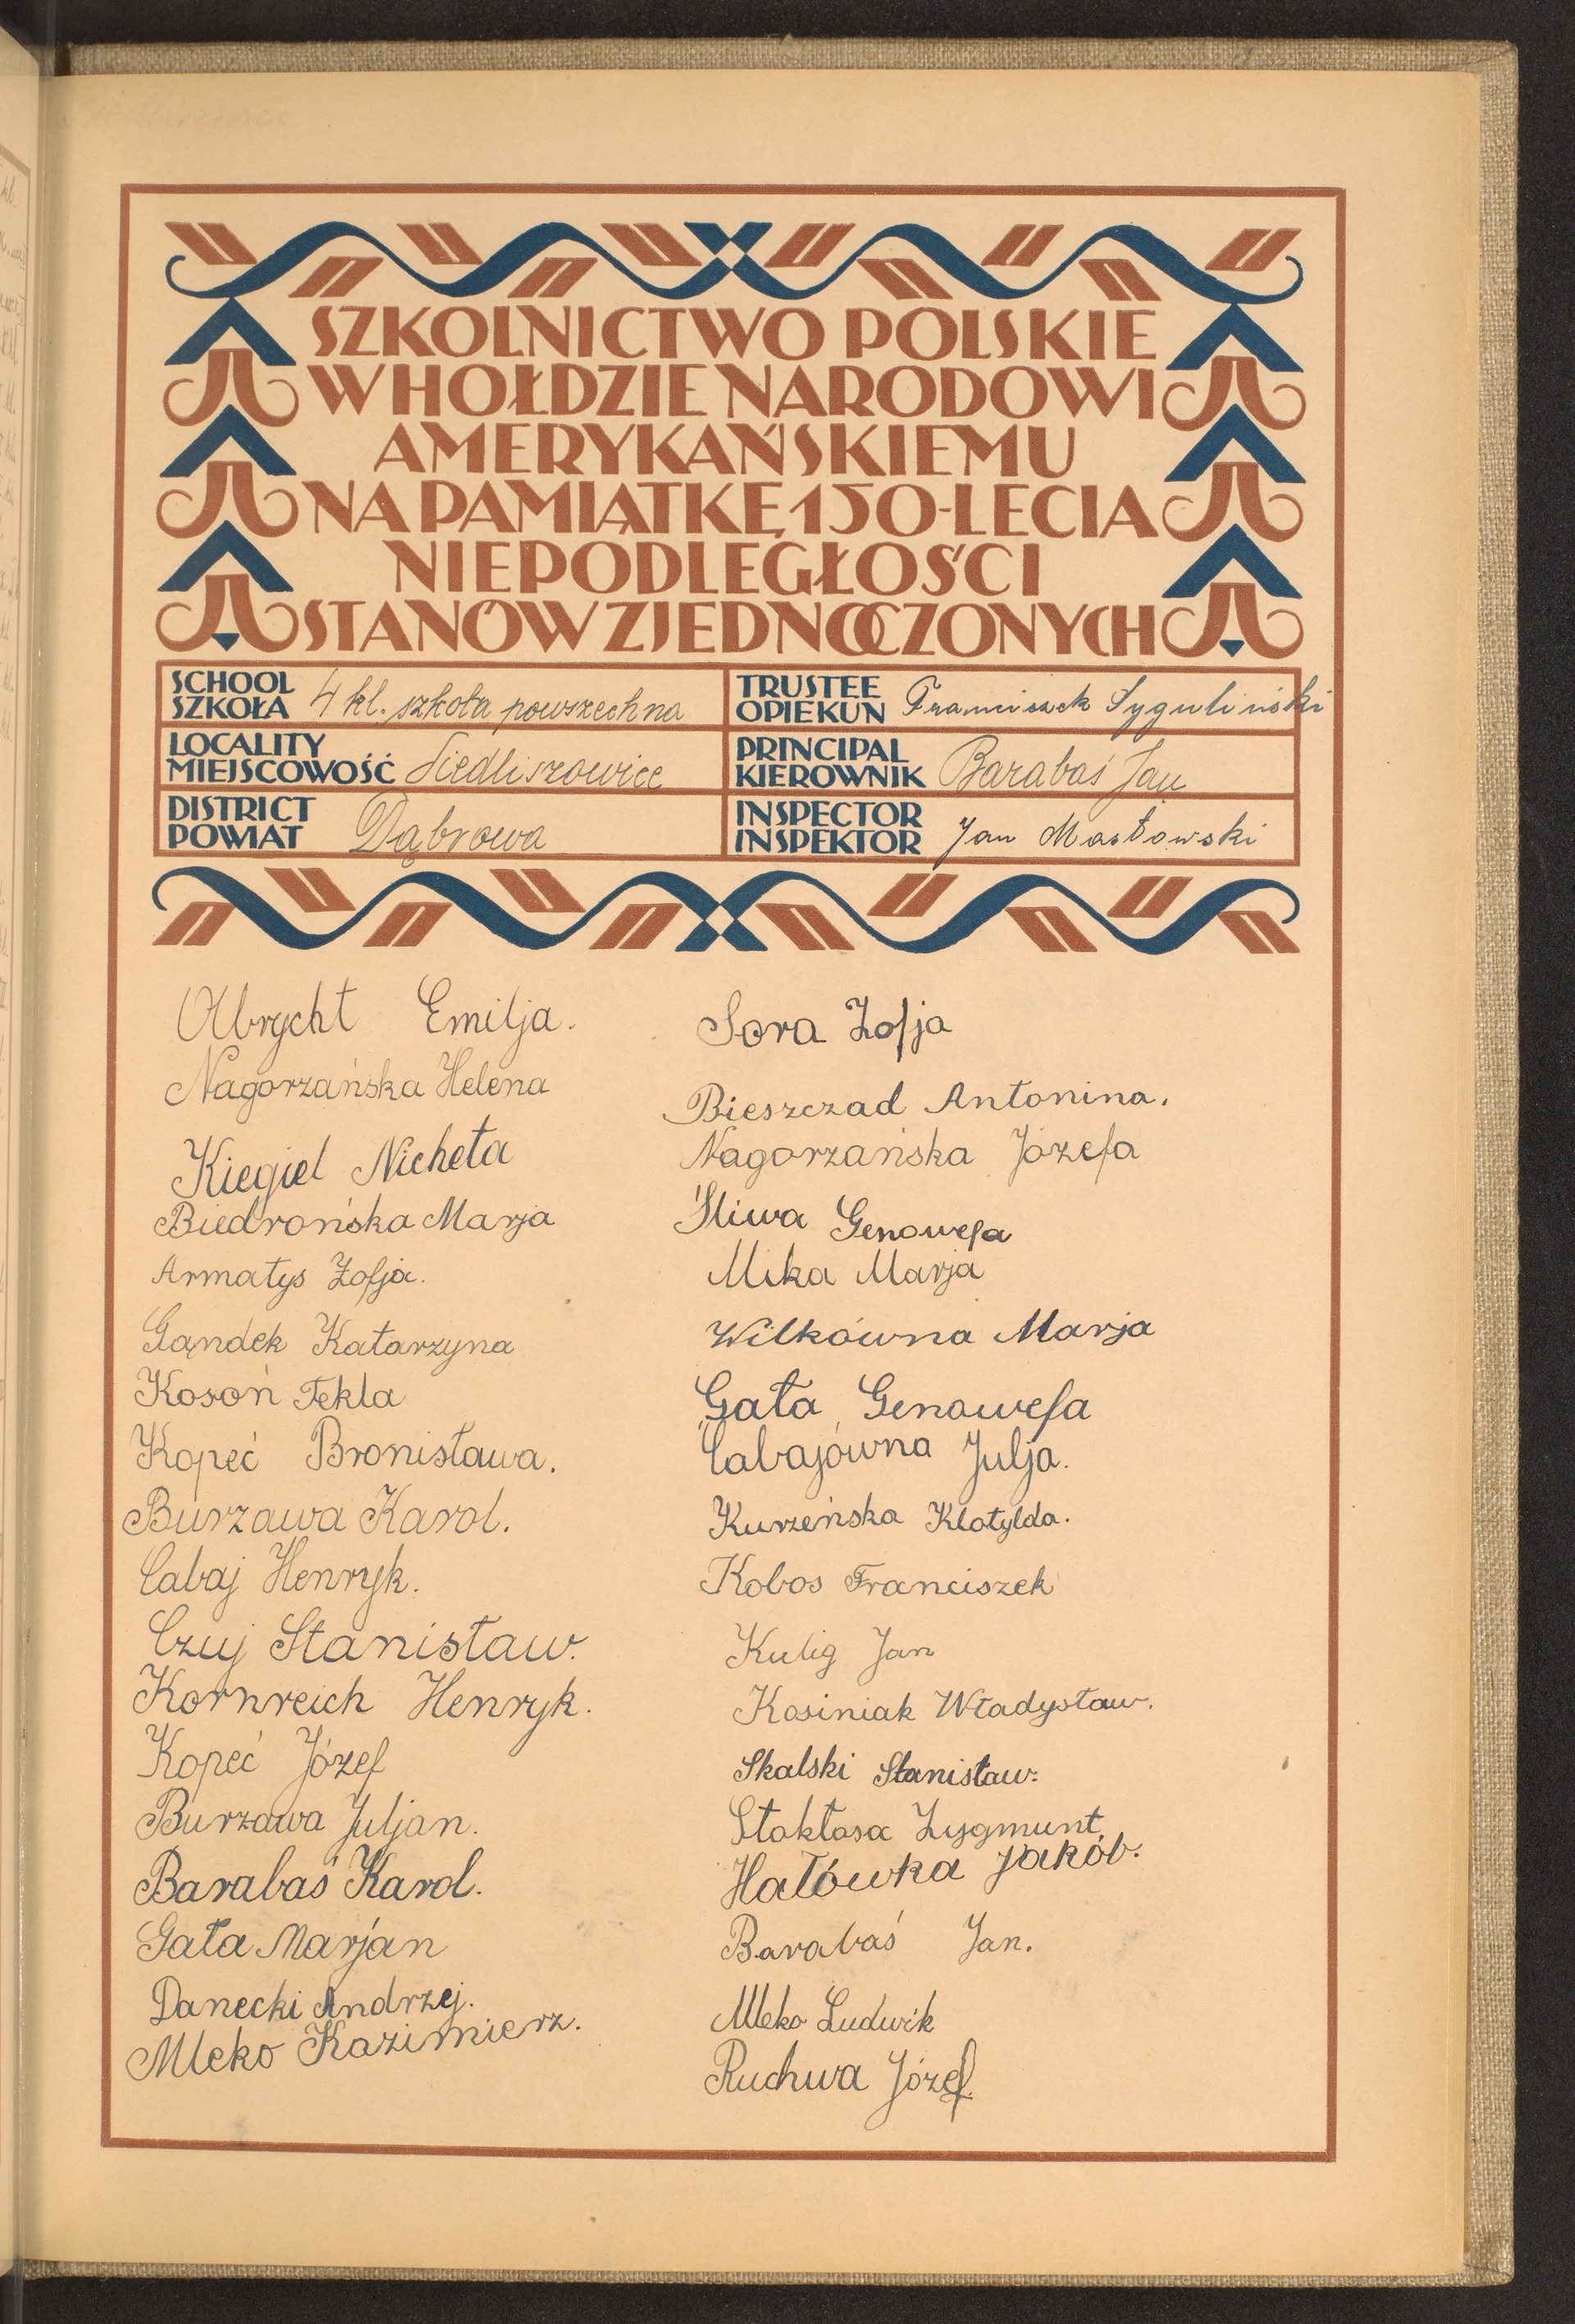 SZKOLNICTWO POLSKIE
W HOŁDZIE NARODOWI
AMERYKAŃSKIEMU
NA PAMIĄTKĘ 150-LECIA
NIEPODLEGŁOŚCI
STANÓW ZJEDNOCZONYCH
SCHOOL
SZKOŁA 4 kl. szkoła powszechna
LOCALITY
MIEJSCOWOŚĆ Siedliszowice
DISTRICT
POWIAT Dąbrowa
TRUSTEE
OPIEKUN Franciszek Syguliński
PRINCIPAL
KIEROWNIK Barabaś Jan
INSPECTOR
INSPEKTOR Jan Masłowski
Olbrycht Emilja.
Nagorzańska Helena
Kiegiel Nicheta
Biedrońska Marja
Armatys Zofja.
Gąndek Katarzyna
Kosoń Tekla
Kopeć Bronisława.
Burzawa Karol.
Cabaj Henryk.
Czuj Stanisław.
Kornreich Henryk.
Kopeć Józef
Burzawa Juljan.
Barabaś Karol.
Gała Marjan
Danecki Andrzej.
Mleko Kazimierz.
Sora Zofja
Bieszczad Antonina.
Nagorzańska Józefa
Śliwa Genowefa
Mika Marja
Wilkówna Marja
Gała Genowefa
Cabajówna Julja.
Kurzeńska Klotylda.
Kobos Franciszek
Kulig Jan
Kosiniak Władysław.
Skalski Stanisław.
Stokłosa Zygmunt
Hałówka Jakób.
Barabaś Jan.
Mleko Ludwik
Ruchwa Józef.